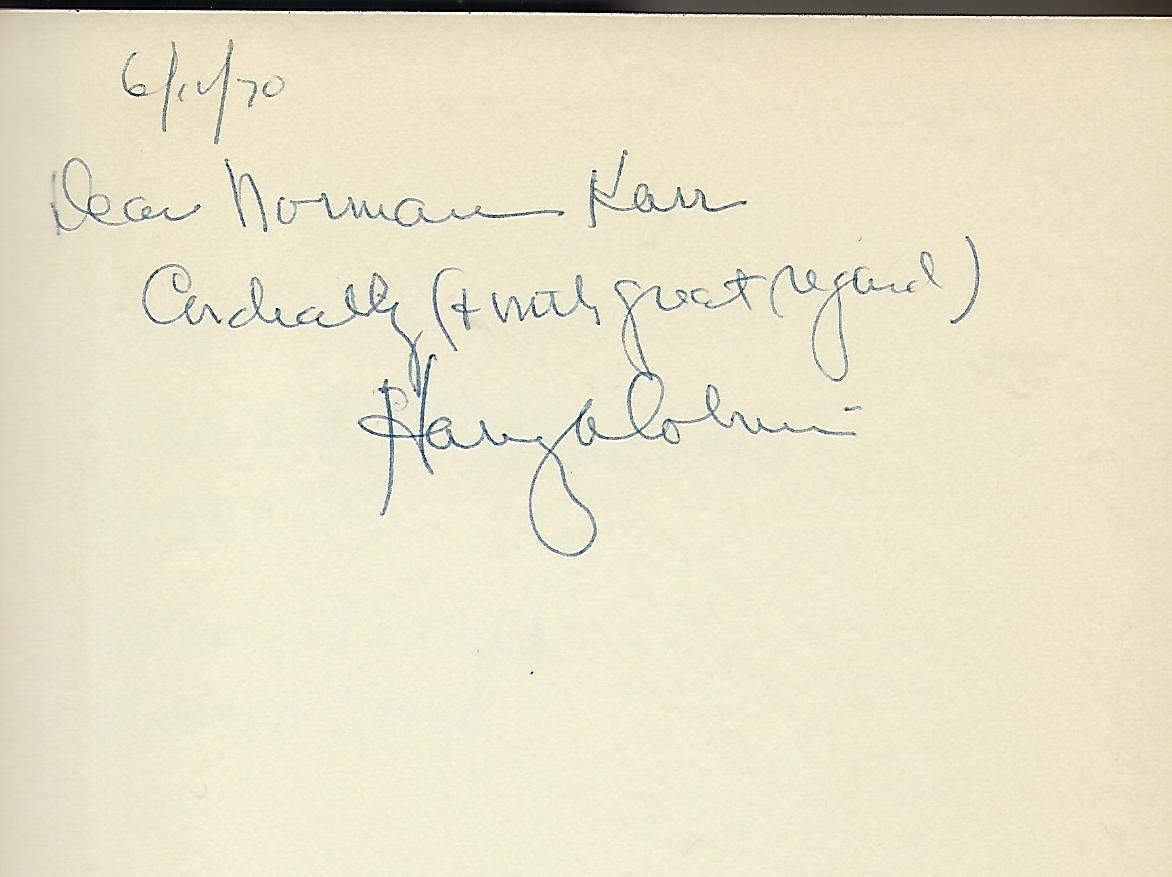 6/11/70
Dear Norman Karr
Cordially (+ with great regard)
Harry A Cobrin